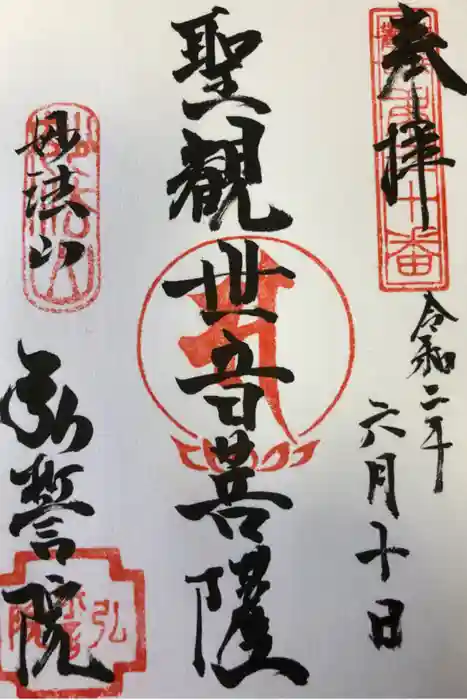 奉拝
令和二年
六月十日
聖観世音菩薩
妙法山
弘誓院